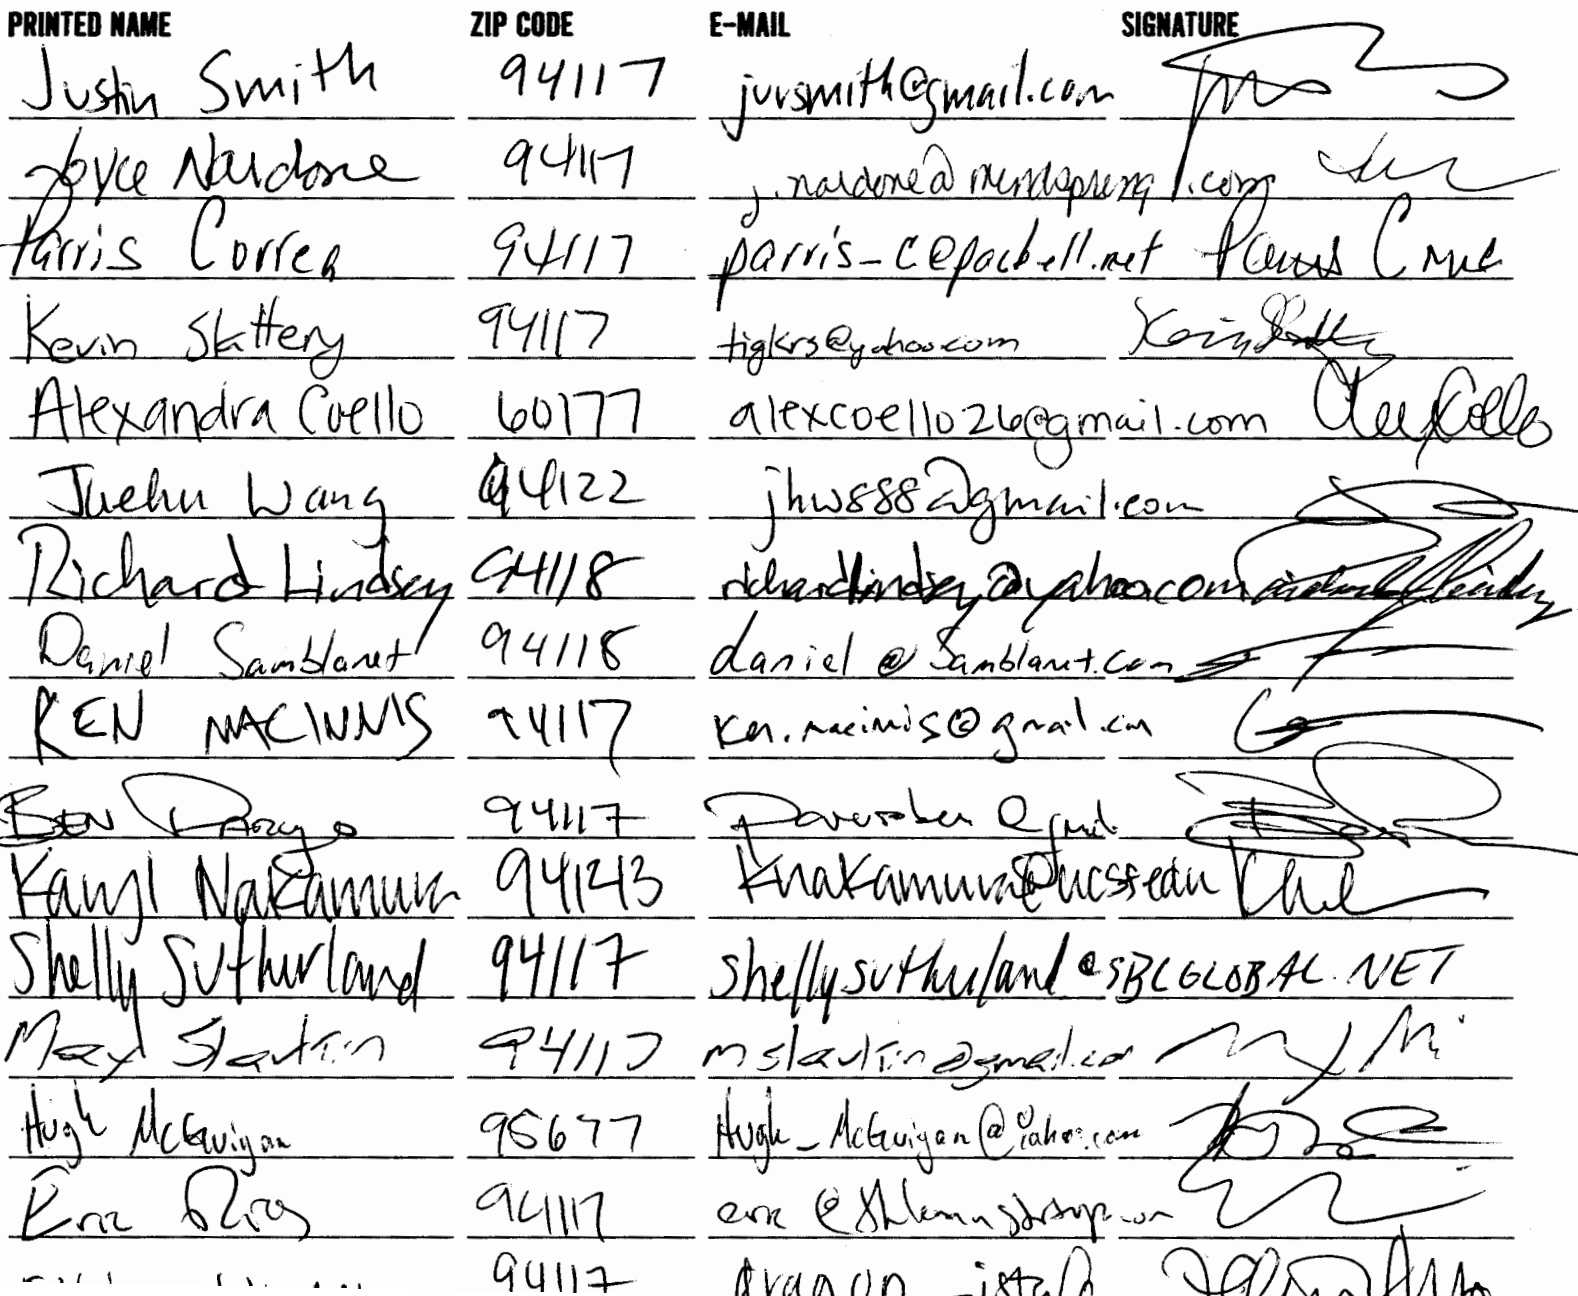 PRINTED NAME ZIP CODE E-MAIL SIGNATURE
Justin Smith 94117 jursmith@gmail.com
Joyce Nardone 94117 j.nardone@mindspring.com
Parris Correa 94117 parris-c@pacbell.net Parris
Kevin Slattery 94117 tigkrs@yahoo.com Kevin Slattery
Alexandra Coello 60177 alexcoello26@gmail.com Alex Coello
Juehu Wang 94122 jhw888@gmail.com
Richard Lindsey 94118 richardlindsey@yahoo.com Richard Lindsey
Daniel Samblanet 94118 daniel@Samblanet.com
KEN MACINNIS 94117 ken.macinnis@gmail.com
BEN 94117
Karyl Nakamura 94143 Knakamura@ucsf.edu
Shelly Sutherland 94117 shellysutherland@SBCGLOBAL.NET
Max Slavkin 94117 mslavkin@gmail.com
Hugh McGuigan 95677 Hugh_McGuigan@yahoo.com
Eric 94117 eric
94117